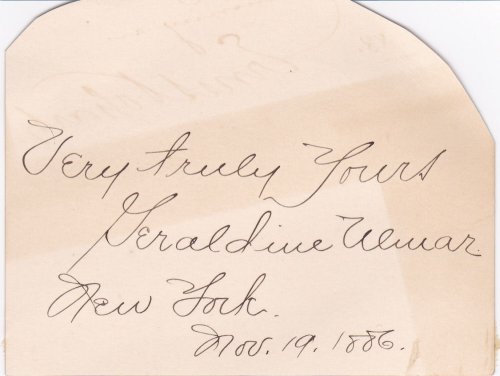 Very truly Yours
Geraldine Ulmar.
New York.
Nov. 19. 1886.